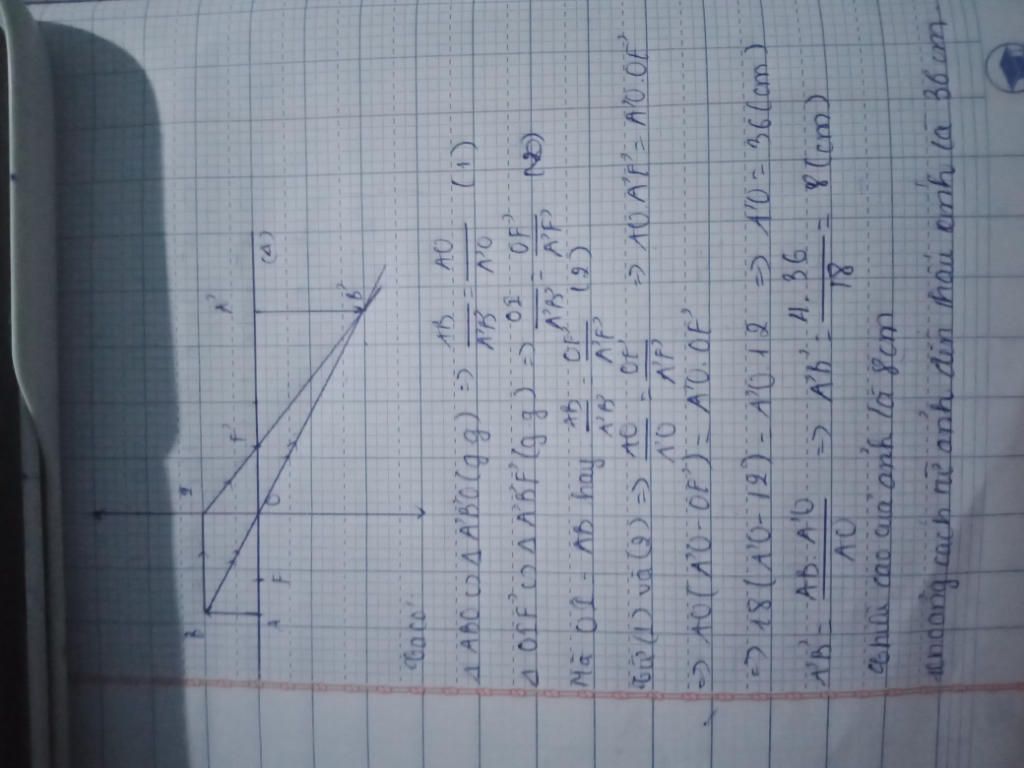 B I
F' A'
A F O (Δ)
B'
ΔABO ∽ ΔA'B'O (g g) => AB/A'B' = AO/A'O (1)
ΔOIF' ∽ ΔA'B'F' (g g) => OI/A'B' = OF'/A'F'
Mà OI = AB hay AB/A'B' = OF'/A'F' (2)
Từ (1) và (2) => AO/A'O = OF'/A'F' => AO A'F' = A'O.OF'
=> AO(A'O - OF') = A'O.OF'
=> 18(A'O - 12) = A'O.12 => A'O = 36(cm)
A'B' = AB.A'O/AO => A'B' = 4.36/18 = 8(cm)
Chiều cao của ảnh là 8cm
khoảng cách từ ảnh đến thấu ảnh là 36cm